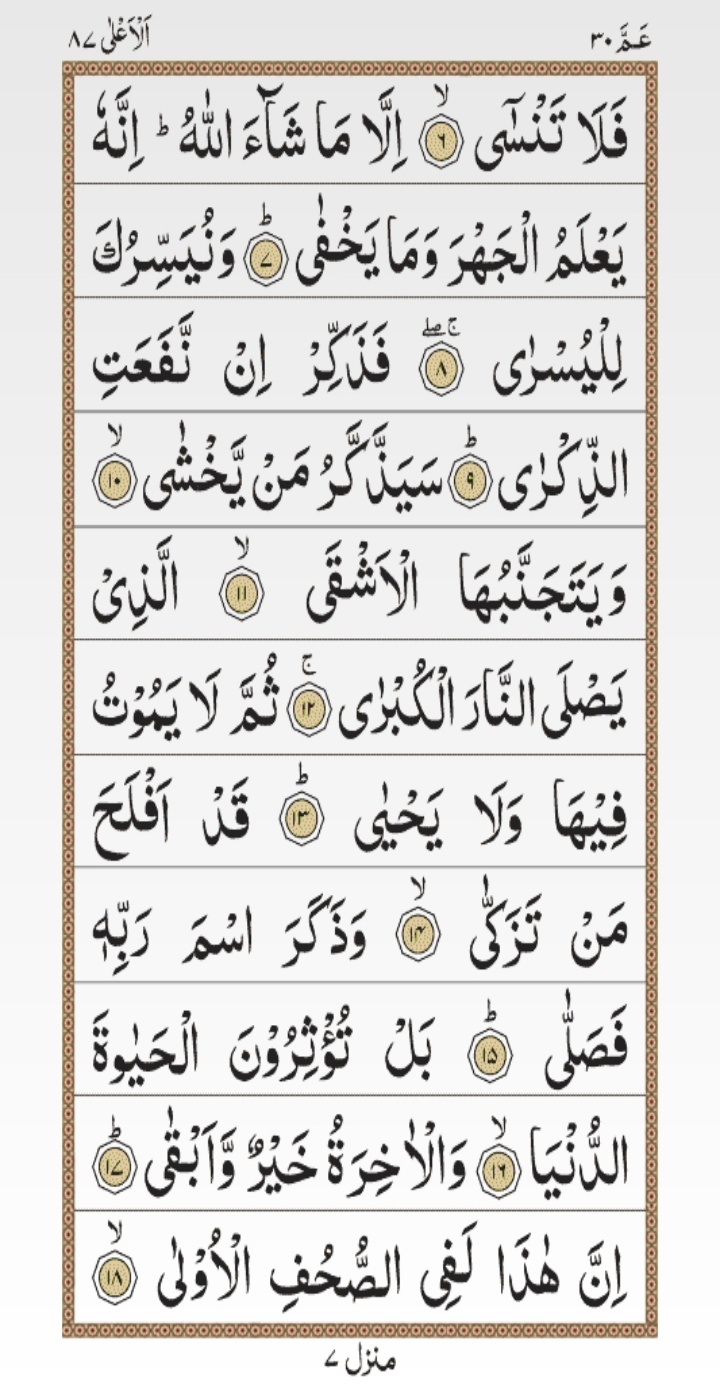 عَمَّ ٣٠ اَلْاَعْلٰى ٨٧
فَلَا تَنْسٰٓى ۙ‏﴿۶﴾ اِلَّا مَا شَآءَ اللّٰهُ ؕ اِنَّهٗ
يَعْلَمُ الْجَهْرَ وَمَا يَخْفٰى ؕ‏﴿۷﴾ وَنُيَسِّرُكَ
لِلْيُسْرٰى ‌ۖۚ‏﴿۸﴾ فَذَكِّرْ اِنْ نَّفَعَتِ
الذِّكْرٰى ؕ‏﴿۹﴾ سَيَذَّكَّرُ مَنْ يَّخْشٰى ۙ‏﴿۱۰﴾
وَيَتَجَنَّبُهَا الْاَشْقَى ۙ‏﴿۱۱﴾ الَّذِىْ
يَصْلَى النَّارَ الْكُبْرٰى‌ ۚ‏﴿۱۲﴾ ثُمَّ لَا يَمُوْتُ
فِيْهَا وَلَا يَحْيٰى ؕ‏﴿۱۳﴾ قَدْ اَفْلَحَ
مَنْ تَزَكّٰى ۙ‏﴿۱۴﴾ وَذَكَرَ اسْمَ رَبِّهٖ
فَصَلّٰى‌ ؕ‏﴿۱۵﴾ بَلْ تُؤْثِرُوْنَ الْحَيٰوةَ
الدُّنْيَا ۙ‏﴿۱۶﴾ وَالْاٰخِرَةُ خَيْرٌ وَّاَبْقٰى ؕ‏﴿۱۷﴾
اِنَّ هٰذَا لَفِى الصُّحُفِ الْاُوْلٰى ۙ‏﴿۱۸﴾
منزل ٧